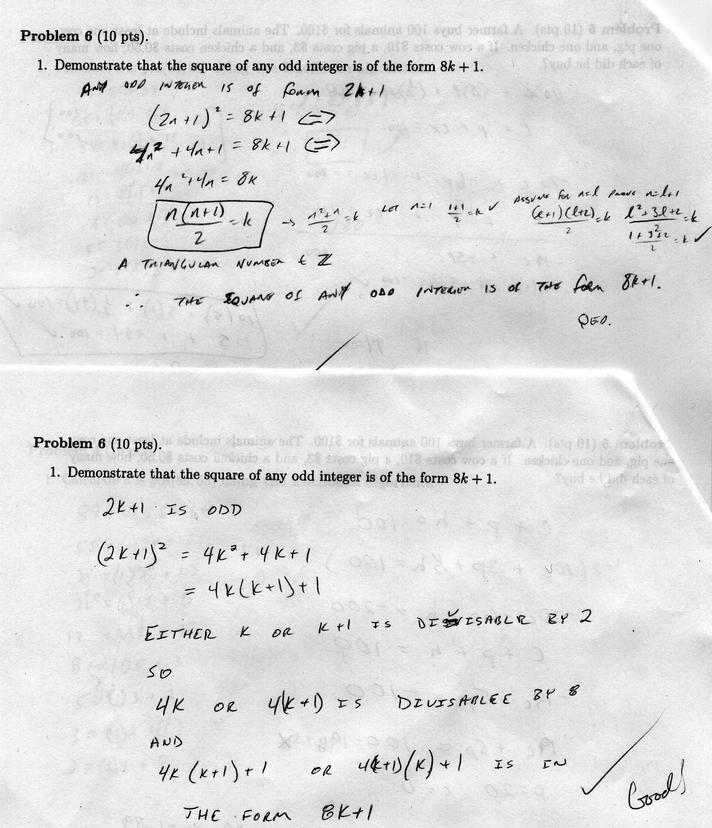 Problem 6 (10 pts).
1. Demonstrate that the square of any odd integer is of the form 8k + 1.
ANY ODD INTEGER IS of form 2k+1
(2n+1)² = 8k+1 <=>
4n² + 4n+1 = 8k+1 <=>
4n² + 4n = 8k
n(n+1)/2 = k → n²+n/2 = k LET n=1 1+1/2 = k ✓ Assume for n=l Prove n=l+1 (l+1)(l+2)/2 = k l²+3l+2/2 = k
1+3+2/2 = k ✓
A TRIANGULAR NUMBER ∈ Z
∴ THE SQUARE OF ANY ODD INTEGER IS of THE form 8k+1.
QED.
Problem 6 (10 pts).
1. Demonstrate that the square of any odd integer is of the form 8k + 1.
2K+1 IS ODD
(2K+1)² = 4K² + 4K + 1
= 4K(K+1)+1
EITHER K OR K+1 IS DIVISABLE BY 2
SO
4K OR 4(K+1) IS DIVISABLEE BY 8
AND
4K(K+1)+1 OR 4(K+1)(K)+1 IS IN
THE FORM 8K+1
Good!